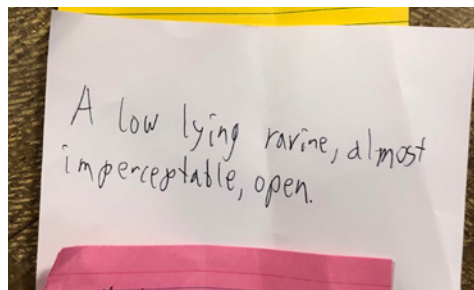 A low lying ravine, almost
imperceptable, open.